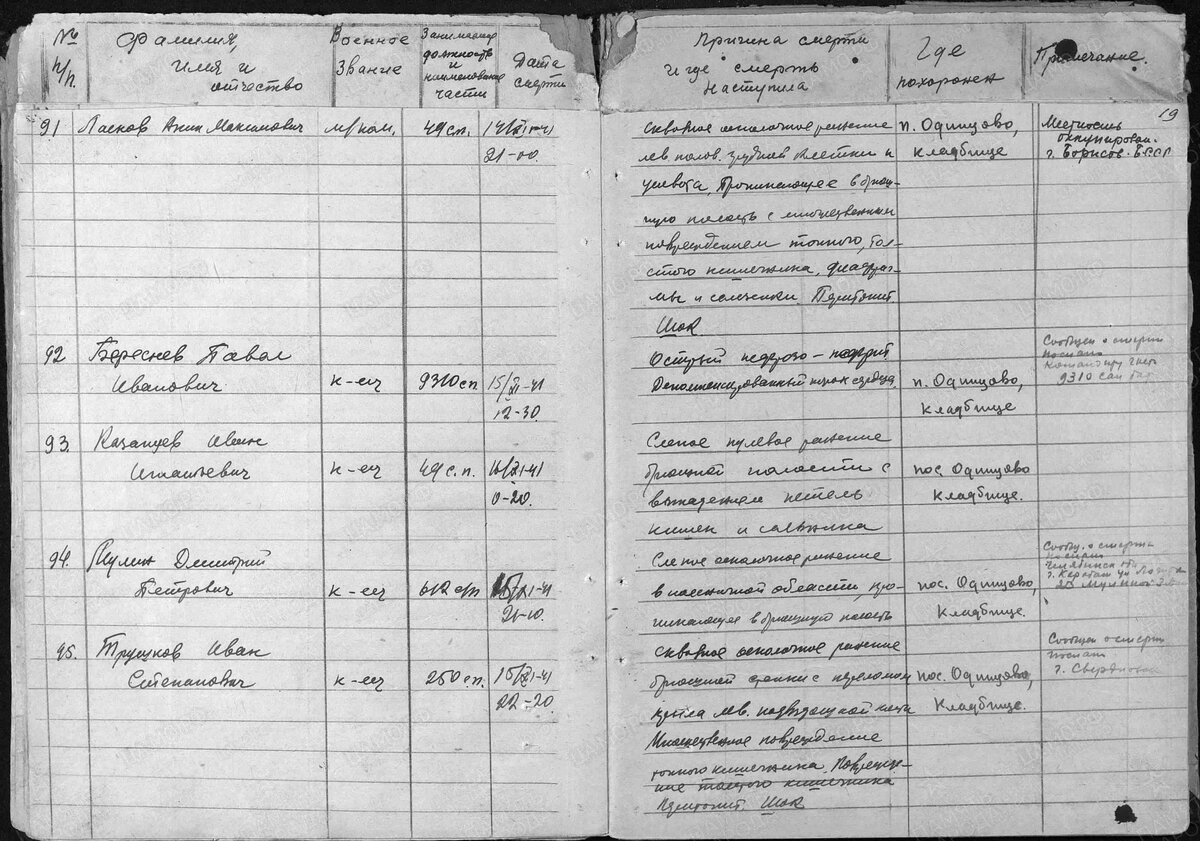 № п/п.
Фамилия, имя и отчество
Военное звание
Занимаемая должность и наименование части
Дата смерти
Причина смерти и где смерть наступила
Где похоронен
Примечание.
19
91 Ласков Аким Максимович мл. ком. 49 сп. 14/XI-41
21-00.
Сквозное осколочное ранение п. Одинцово, Местность
лев. полов. грудной клетки и кладбище оккупирован.
г. Борисов. БССР
живота, проникающее в брюш-
ную полость с множественным
повреждением тонкого, тол-
стого кишечника, диафраг-
мы и селезенки. Перитонит.
Шок
92 Береснев Павел
Иванович к-ец 9310 сп 15/XI-41
12-30.
Острый нефрозо-нефрит Сообщен о смерти
послат
Декомпенсированный порок сердца. п. Одинцово, командиру
кладбище 9310 сан
93. Казанцев Иван
Игнатьевич к-ец 49 с.п. 16/XI-41
0-20.
Слепое пулевое ранение
брюшной полости с пос. Одинцово
выпадением петель кладбище.
кишек и сальника
94. Мулин Дмитрий
Петрович к-ец 612 с/п 15/XI-41
21-10.
Слепое осколочное ранение Сообщ. о смерти
послат
Челябинск
в поясничной области, про- пос. Одинцово,
никающее в брюшную полость кладбище.
95. Трушков Иван
Степанович к-ец 250 сп. 15/XI-41
22-20
Сквозное осколочное ранение Сообщен о смерти
послат
брюшной стенки с переломом пос. Одинцово, г. Свердловск
крыла лев. подвздошной кости кладбище.
Множественное повреждение
тонкого кишечника. Поврежде-
ние толстого кишечника
Перитонит. Шок